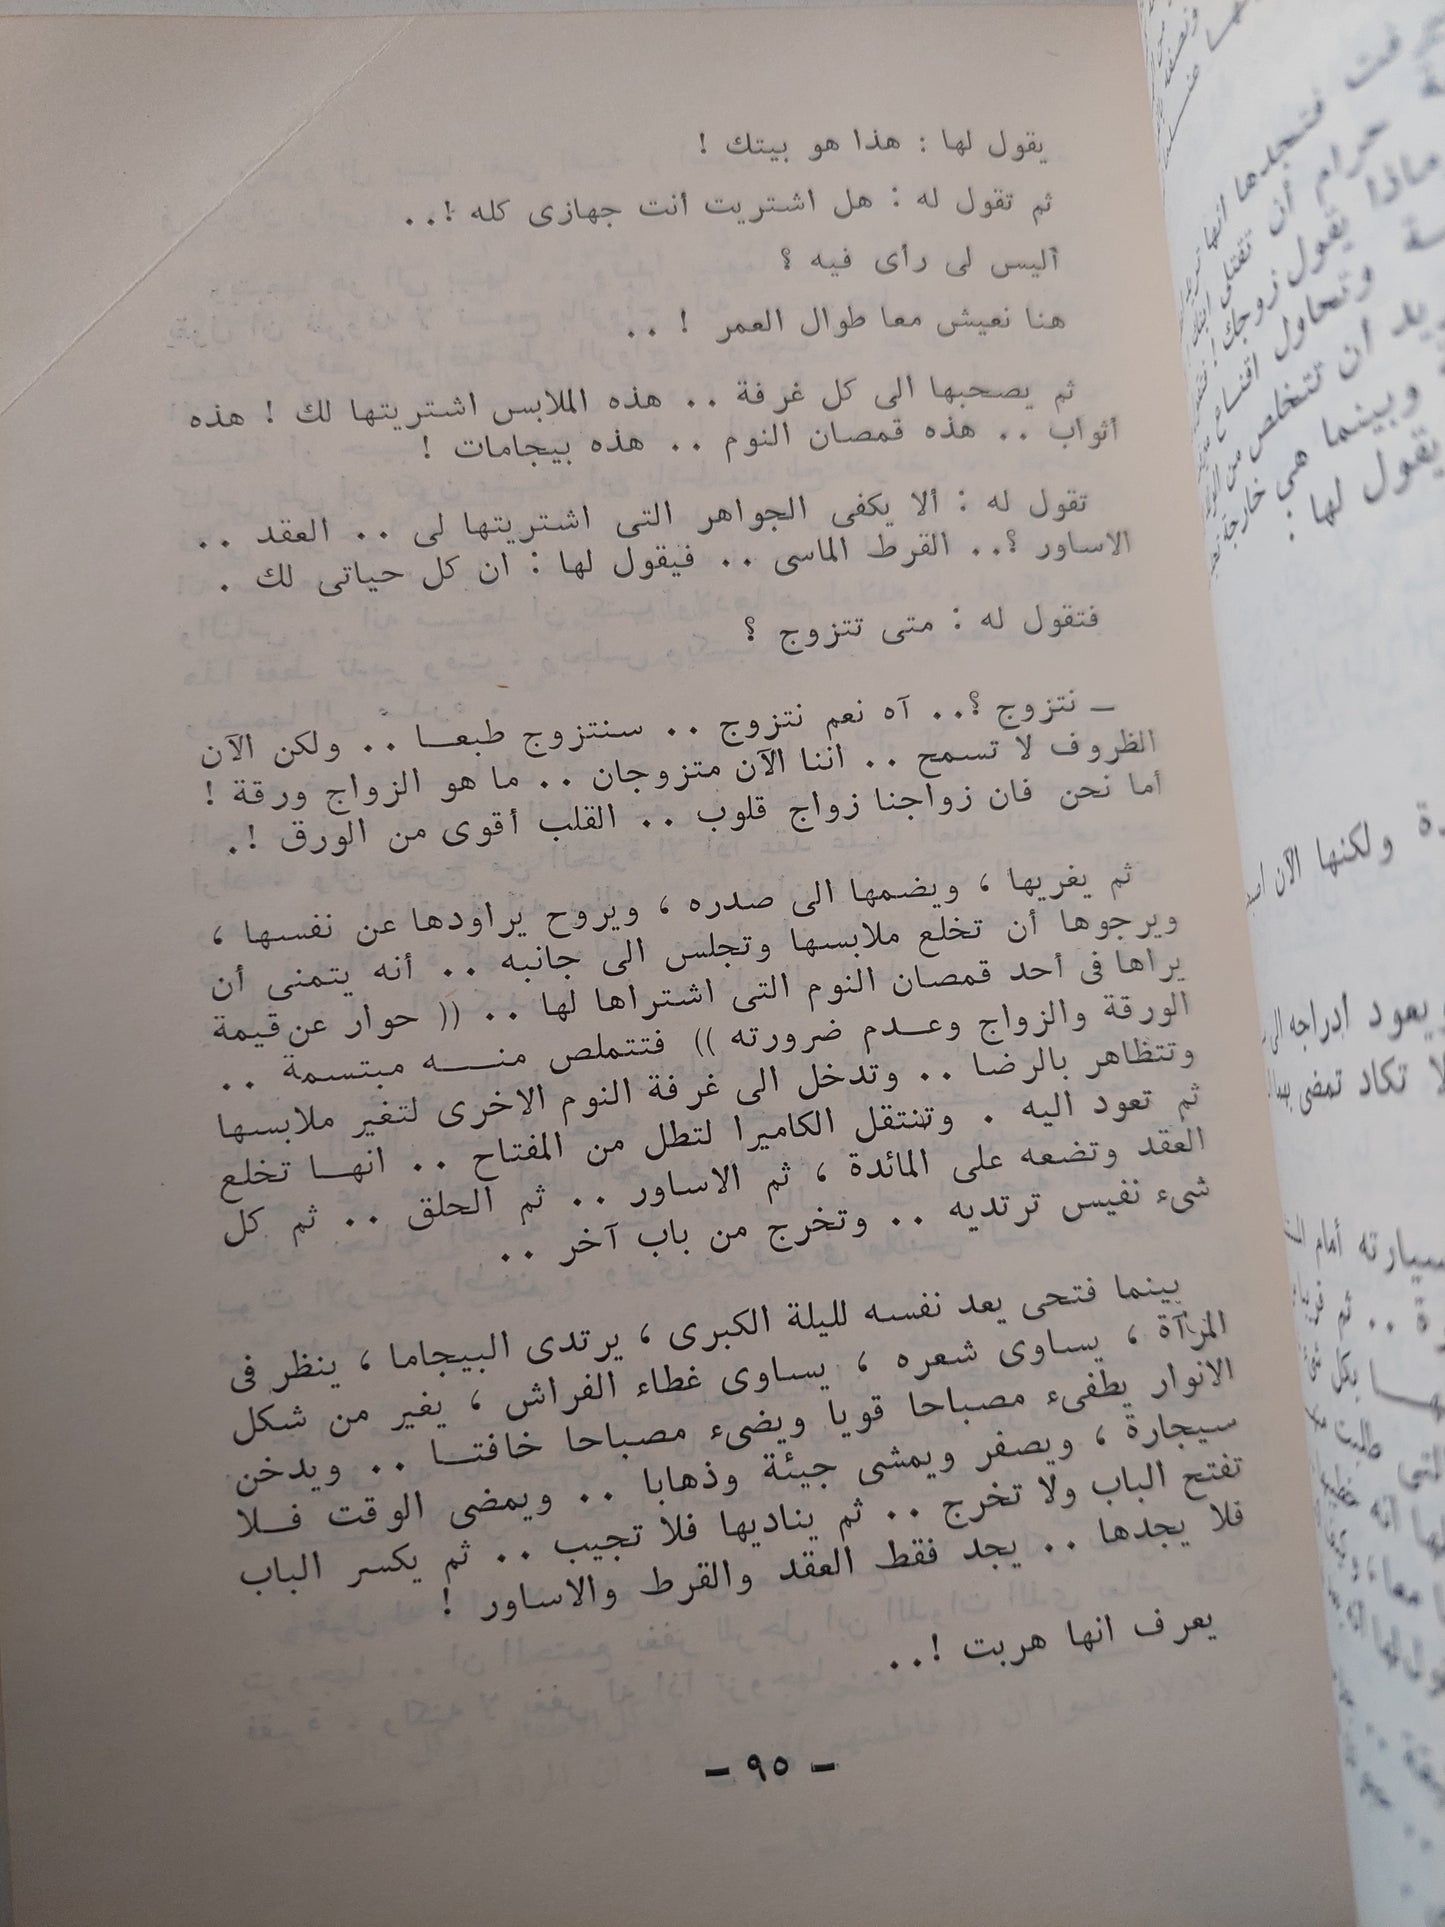 يقول لها : هذا هو بيتك !
ثم تقول له : هل اشتريت أنت جهازى كله !..
أليس لى رأى فيه ؟
هنا نعيش معا طوال العمر ! ..
ثم يصحبها الى كل غرفة .. هذه الملابس اشتريتها لك ! هذه
أثواب .. هذه قمصان النوم .. هذه بيجامات !
تقول له : ألا يكفى الجواهر التى اشتريتها لى .. العقد ..
الاساور ؟.. القرط الماسى .. فيقول لها : ان كل حياتى لك .
فتقول له : متى نتزوج ؟
ــ نتزوج ؟.. آه نعم نتزوج .. سنتزوج طبعــا .. ولكن الآن
الظروف لا تسمح .. اننا الآن متزوجان .. ما هو الزواج ورقة !
أما نحن فان زواجنا زواج قلوب .. القلب أقوى من الورق !.
ثم يغريها ، ويضمها الى صدره ، ويروح يراودها عن نفسها ،
ويرجوها أن تخلع ملابسها وتجلس الى جانبه .. أنه يتمنى أن
يراها فى أحد قمصان النوم التى اشتراها لها .. (( حوار عن قيمة
الورقة والزواج وعــدم ضرورته )) فتتملص منــــه مبتسمة ..
وتتظاهر بالرضا .. وتدخل الى غرفة النوم الاخرى لتغير ملابسها
ثم تعود اليه . وتنتقل الكاميرا لتطل من المفتاح .. انهــا تخلع
العقد وتضعه على المائدة ، ثم الاساور .. ثم الحلق .. ثم كل
شىء نفيس ترتديه .. وتخرج من باب آخر ..
بينما فتحى يعد نفسه لليلة الكبرى ، يرتدى البيجاما ، ينظر فى
المرآة ، يساوى شعره ، يساوى غطاء الفراش ، يغير من شكل
الانوار يطفىء مصباحا قويا ويضىء مصباحا خافتــا .. ويدخن
سيجارة ، ويصفر ويمشى جيئة وذهابا .. ويمضى الوقت فــلا
تفتح الباب ولا تخرج .. ثم يناديها فلا تجيب .. ثم يكسر الباب
فلا يجدها .. يجد فقط العقد والقرط والاساور !
يعرف انها هربت !..
ــ ٩٥ ــ
فتجدها انها
حرام أن تقتلى ابنك
ماذا يقول زوجك !
وتحاول اقناع
ان تتخلص من
وبينما هى خارجة
يقول لها :
ولكنها الآن
يعود أدراجه الى
لا تكاد تمضى
سيارته أمام